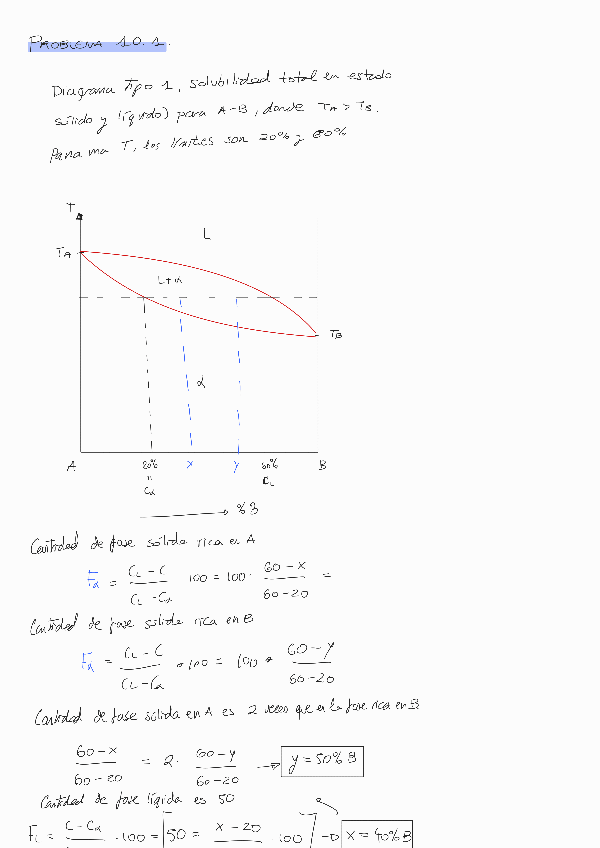 PROBLEMA 10.1.
Diagrama Tipo 1, solubilidad total en estado
sólido y líquido) para A-B, donde TA > TB.
Para una T, los límites son 20% y 60%
T
L
TA
L+α
TB
α
A 20% X Y 60% B
Cα CL
→ %B
Cantidad de fase sólida rica en A
Fα = (CL - C)/(CL - Cα) · 100 = 100 · (60 - X)/(60 - 20) =
Cantidad de fase sólida rica en B
Fα = (CL - C)/(CL - Cα) · 100 = 100 · (60 - Y)/(60 - 20)
Cantidad de fase sólida en A es 2 veces que en la fase rica en B
(60 - X)/(60 - 20) = 2 · (60 - Y)/(60 - 20) → y = 50% B
Cantidad de fase líquida es 50
FL = C - Cα · 100 = 50 = X - 20 100 → X = 40% B